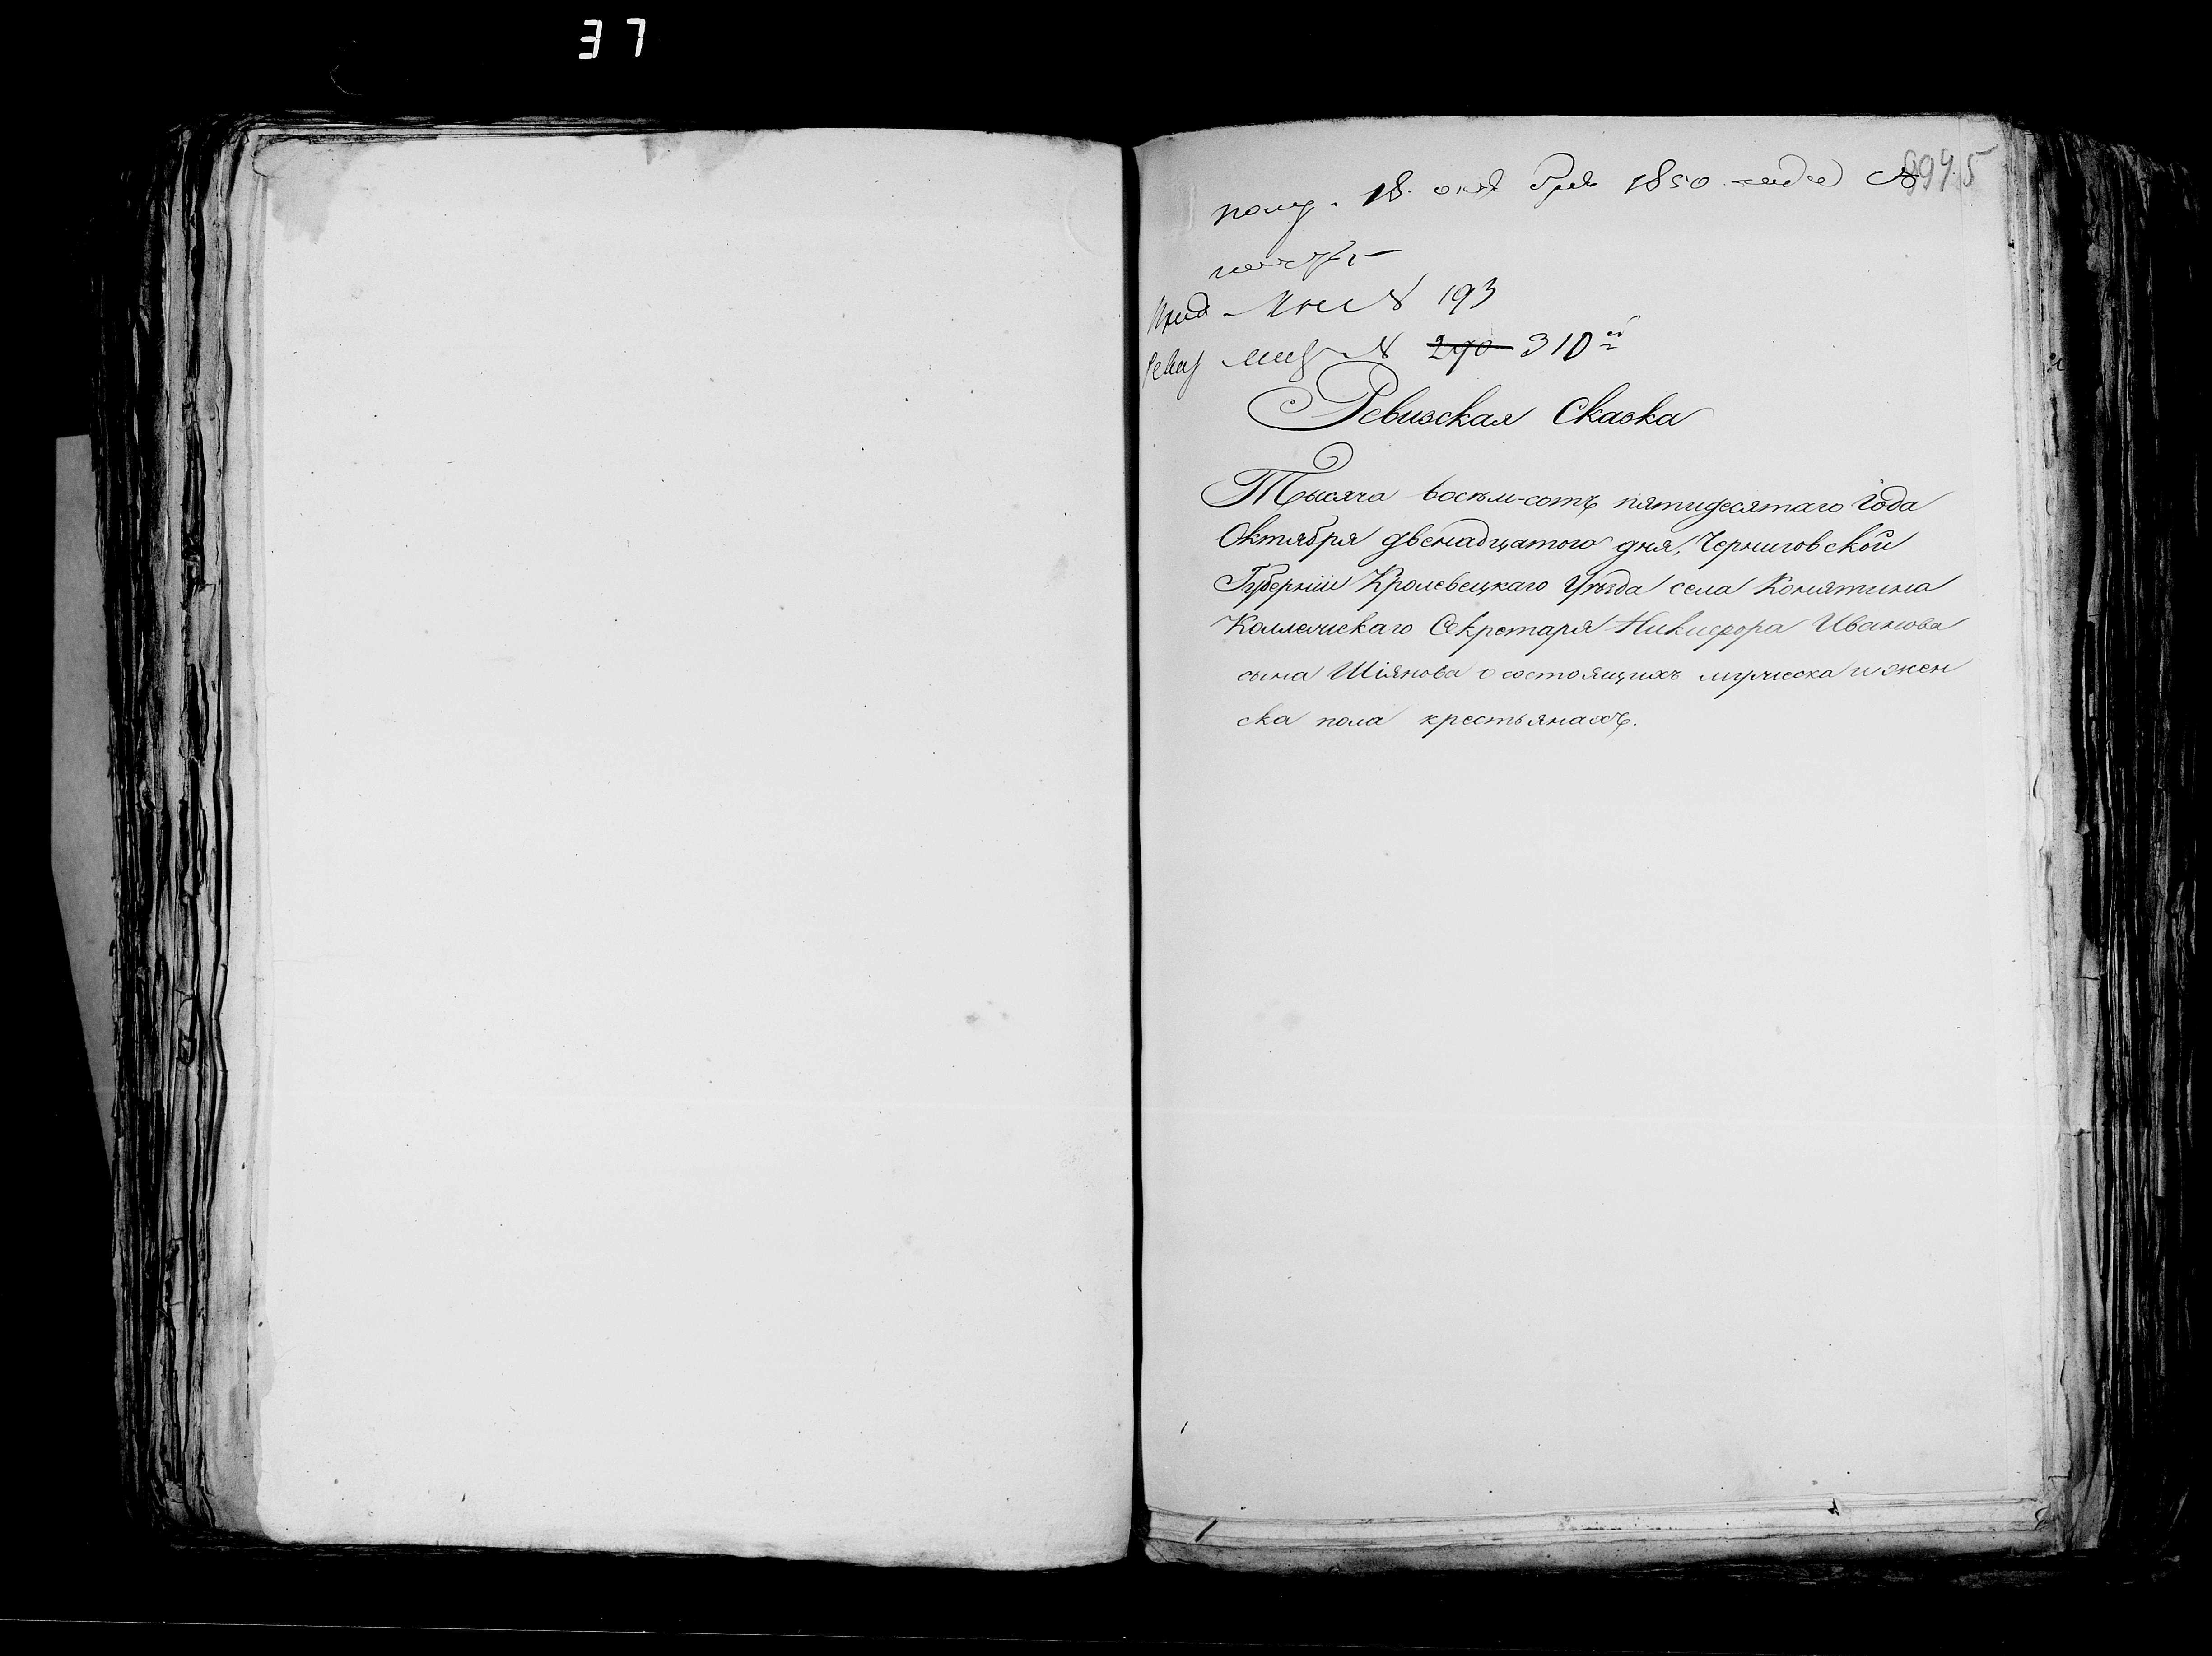 37
995
полу. 18 октября 1850 года №
№ 193
№ 290 310й
Ревизская Сказка
Тысяча восѣм-сотъ пятидесятаго года
Октября двенадцатого дня, Черниговской
Губерніи Кролевецкаго Уѣзда села Конятина
Коллежскаго Секретаря Никифора Иванова
сына Шіянова о состоящихъ мужеска и жен
ска пола крестьянахъ.